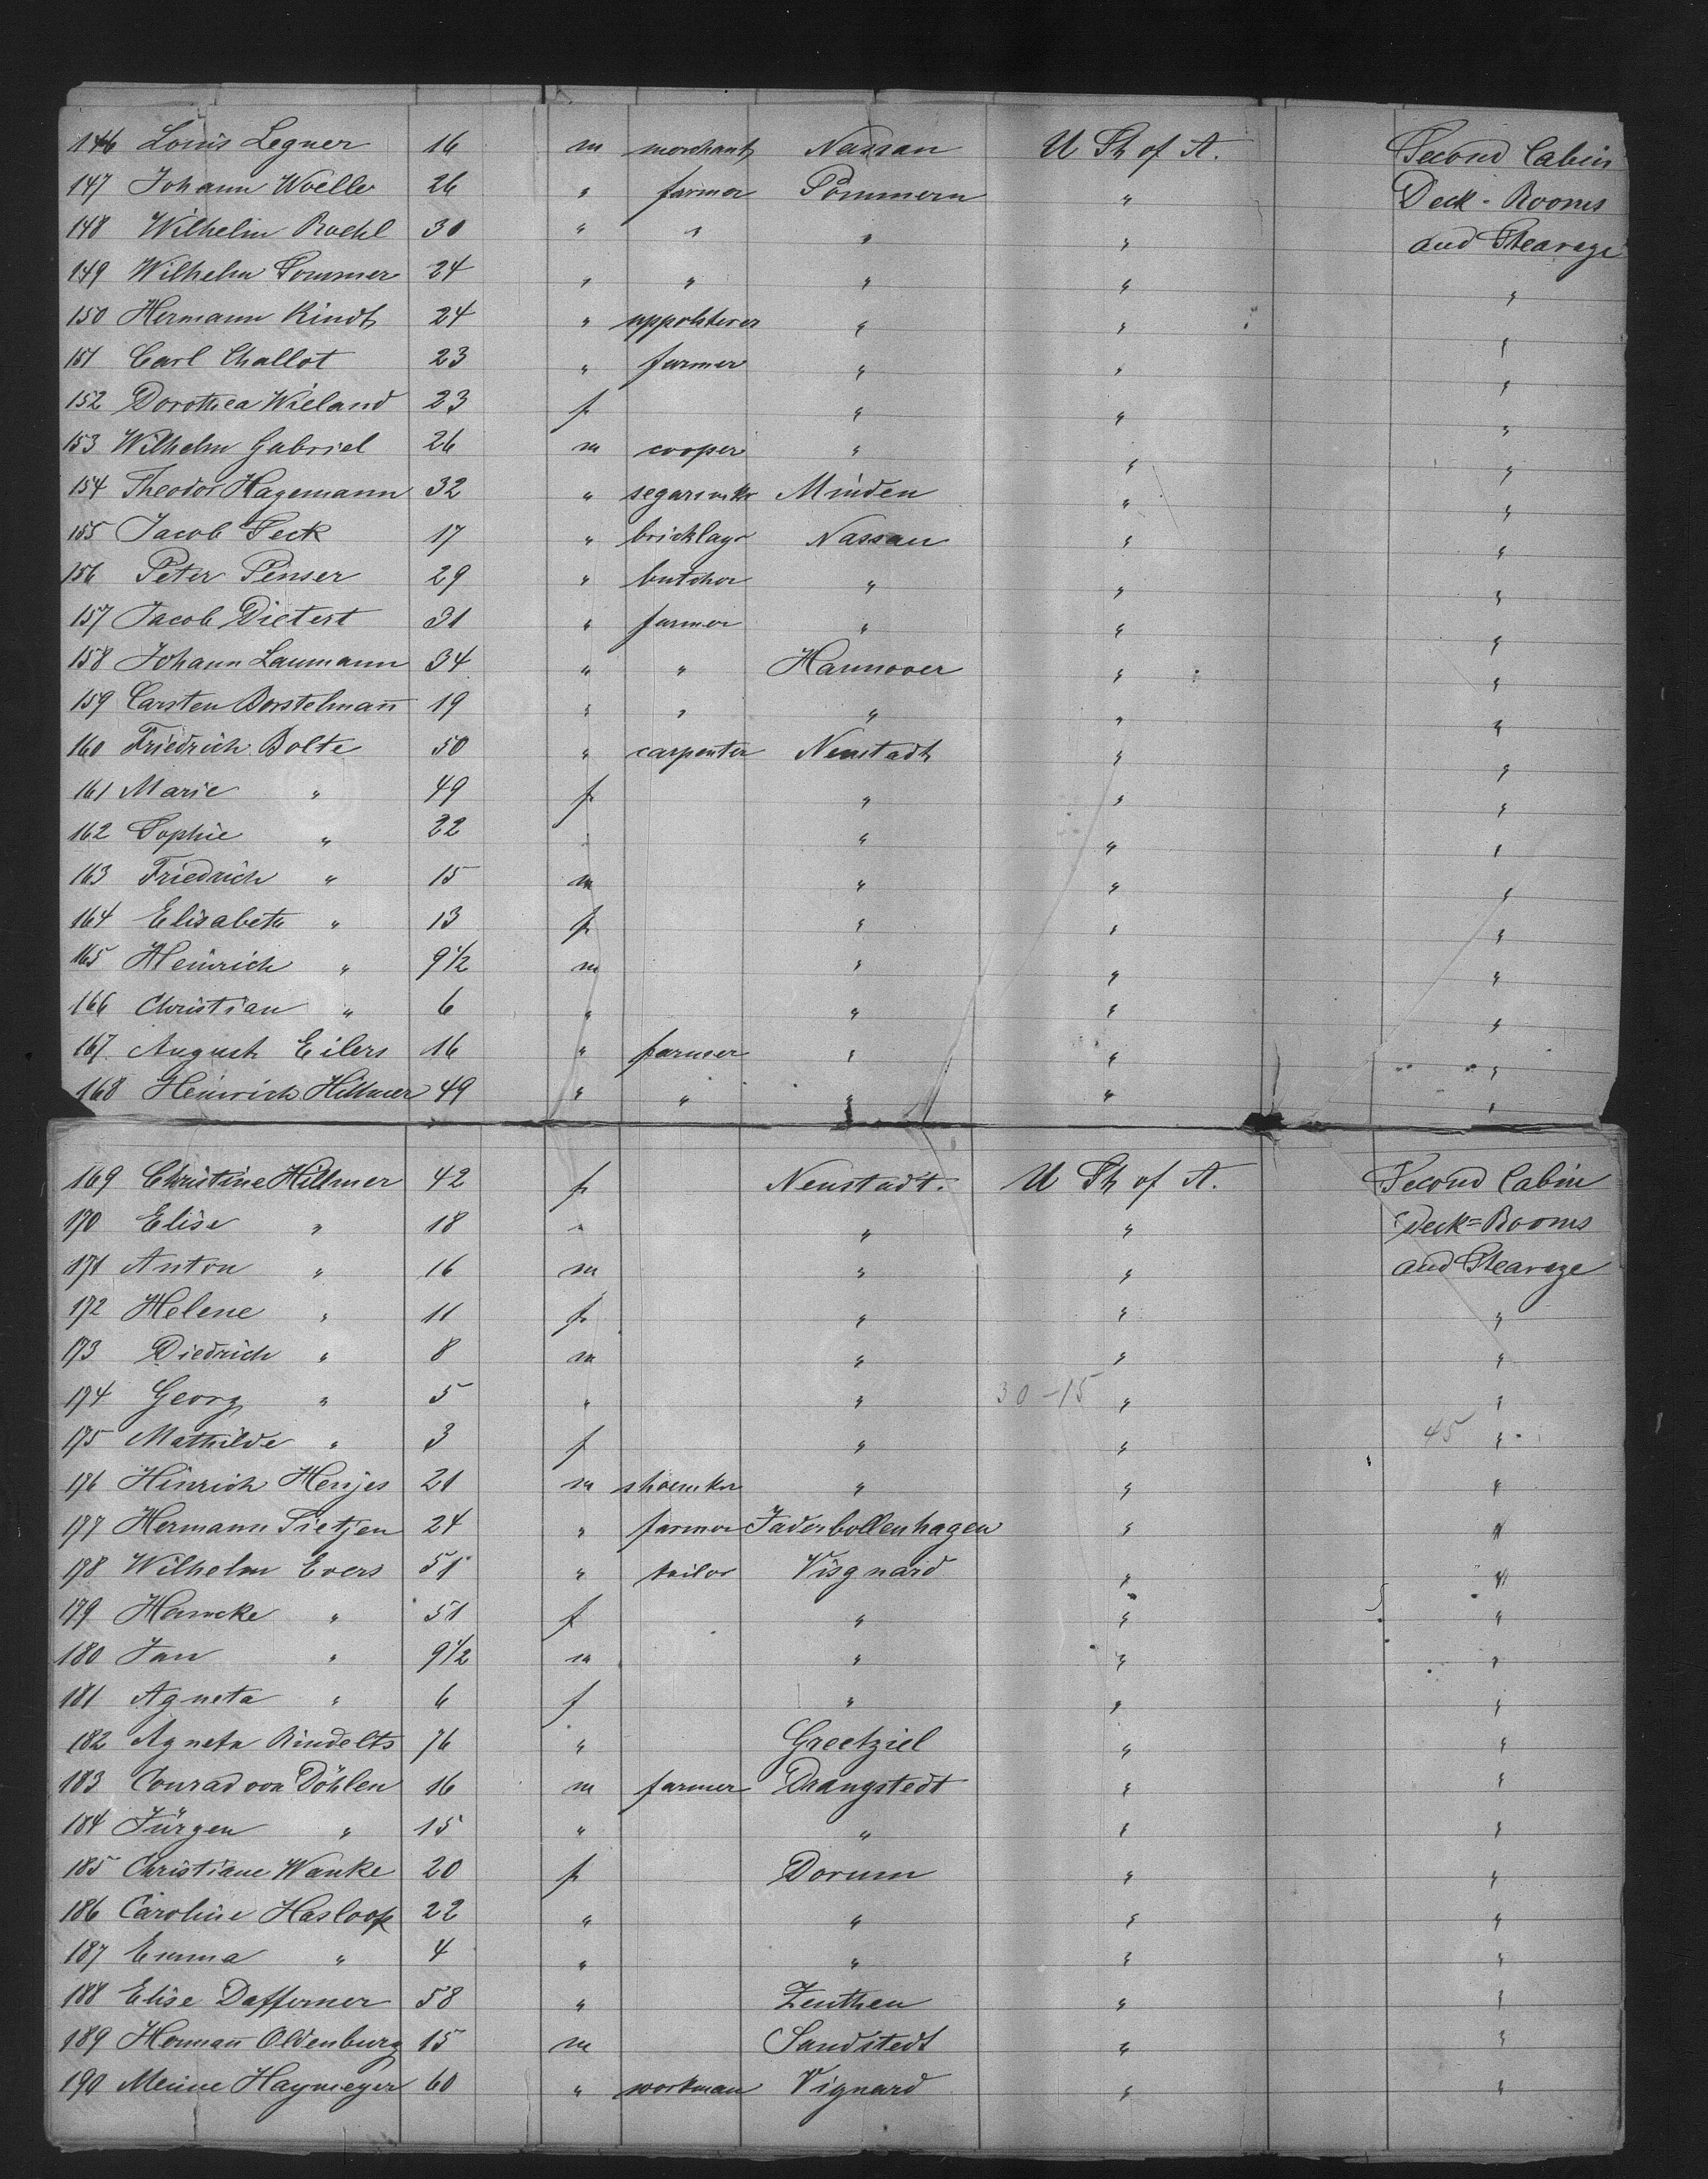 146 Louis Legner 16 m merchant Nassau U St of A. Second Cabin
147 Johann Woeller 26 " farmer Pommern " Deck-Rooms
148 Wilhelm Roehl 30 " " " " and Stearage
149 Wilhelm Sommer 24 " " " " "
150 Hermann Kindt 24 " uppolsterer " " "
151 Carl Challot 23 " farmer " " "
152 Dorothea Wieland 23 f " " "
153 Wilhelm Gabriel 26 m cooper " " "
154 Theodor Hagemann 32 " segarsmkr Minden " "
155 Jacob Seck 17 " bricklayr Nassau " "
156 Peter Penser 29 " butcher " " "
157 Jacob Dietert 31 " farmer " " "
158 Johann Laumann 34 " " Hannover " "
159 Carsten Borstelman̄ 19 " " " " "
160 Friedrich Bolte 50 " carpenter Neustadt " "
161 Marie " 49 f " " "
162 Sophie " 22 " " " "
163 Friedrich " 15 m " " "
164 Elisabeth " 13 f " " "
165 Heinrich " 9 1/2 m " " "
166 Christian " 6 " " " "
167 August Eilers 16 " farmer " " "
168 Heinrich Hillmer 49 " " " " "
169 Christine Hillmer 42 f Neustadt. U St of A. Second Cabin
170 Elise " 18 " " " Deck=Rooms
171 Anton " 16 m " " and Stearage
172 Helene " 11 f " " "
173 Diedrich " 8 m " " "
174 Georg " 5 " " 30-15 " "
175 Mathilde " 3 f " " 45 "
176 Hinrich Henjes 21 m shoemkr " " "
177 Hermann Tietjen 24 " farmer Jaderbollenhagen " "
178 Wilhelm Evers 51 " tailor Visgnard " "
179 Hamcke " 51 f " " "
180 Jan " 9 1/2 m " " "
181 Agneta " 6 f " " "
182 Agneta Rindelts 76 " Greetziel " "
183 Conrad von Döhlen 16 m farmer Drangstedt " "
184 Jürgen " 15 " " " "
185 Christiane Wanke 20 f Dorum " "
186 Caroline Hasloop 22 " " " "
187 Emma " 4 " " " "
188 Elise Dafferner 58 " Zeuthen " "
189 Herman̄ Oldenburg 15 m Sandstedt " "
190 Meine Haymeyer 60 " workman Vignard " "